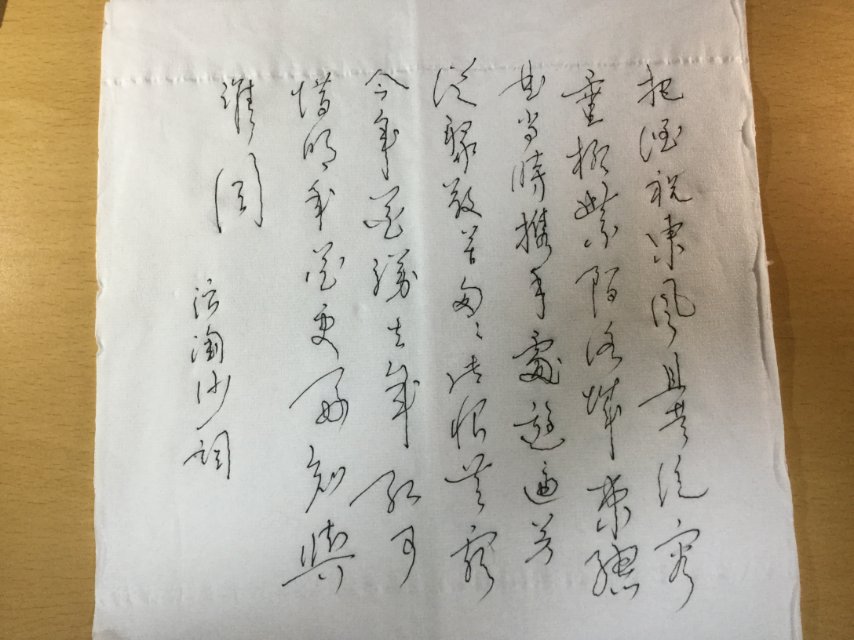 把酒祝東風且共從容
垂楊紫陌洛城東總
是當時攜手處遊遍芳
叢聚散苦匆々此恨無窮
今年花勝去年紅可
惜明年花更好知與
誰同
浪淘沙詞